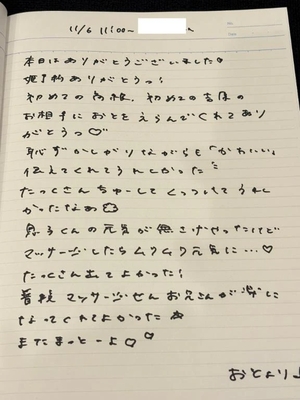 11/6 11:00〜
本日はありがとうございました♡
予約ありがとうっ!
初めての 初めての
お相手におとをえらんでくれてあり
がとうっ♡
恥ずかしがりながらも「かわいい」
伝えてくれてうれしかった
たっくさんちゅーしてくっついてうれし
かったなぁ
くんの元気が けど
マッサージしたらムクムク元気に…♡
たっくさん よかった!
普段 マッサージせん お兄さんが
なってくれてよかった
またまっとーよ♡♡
おとより